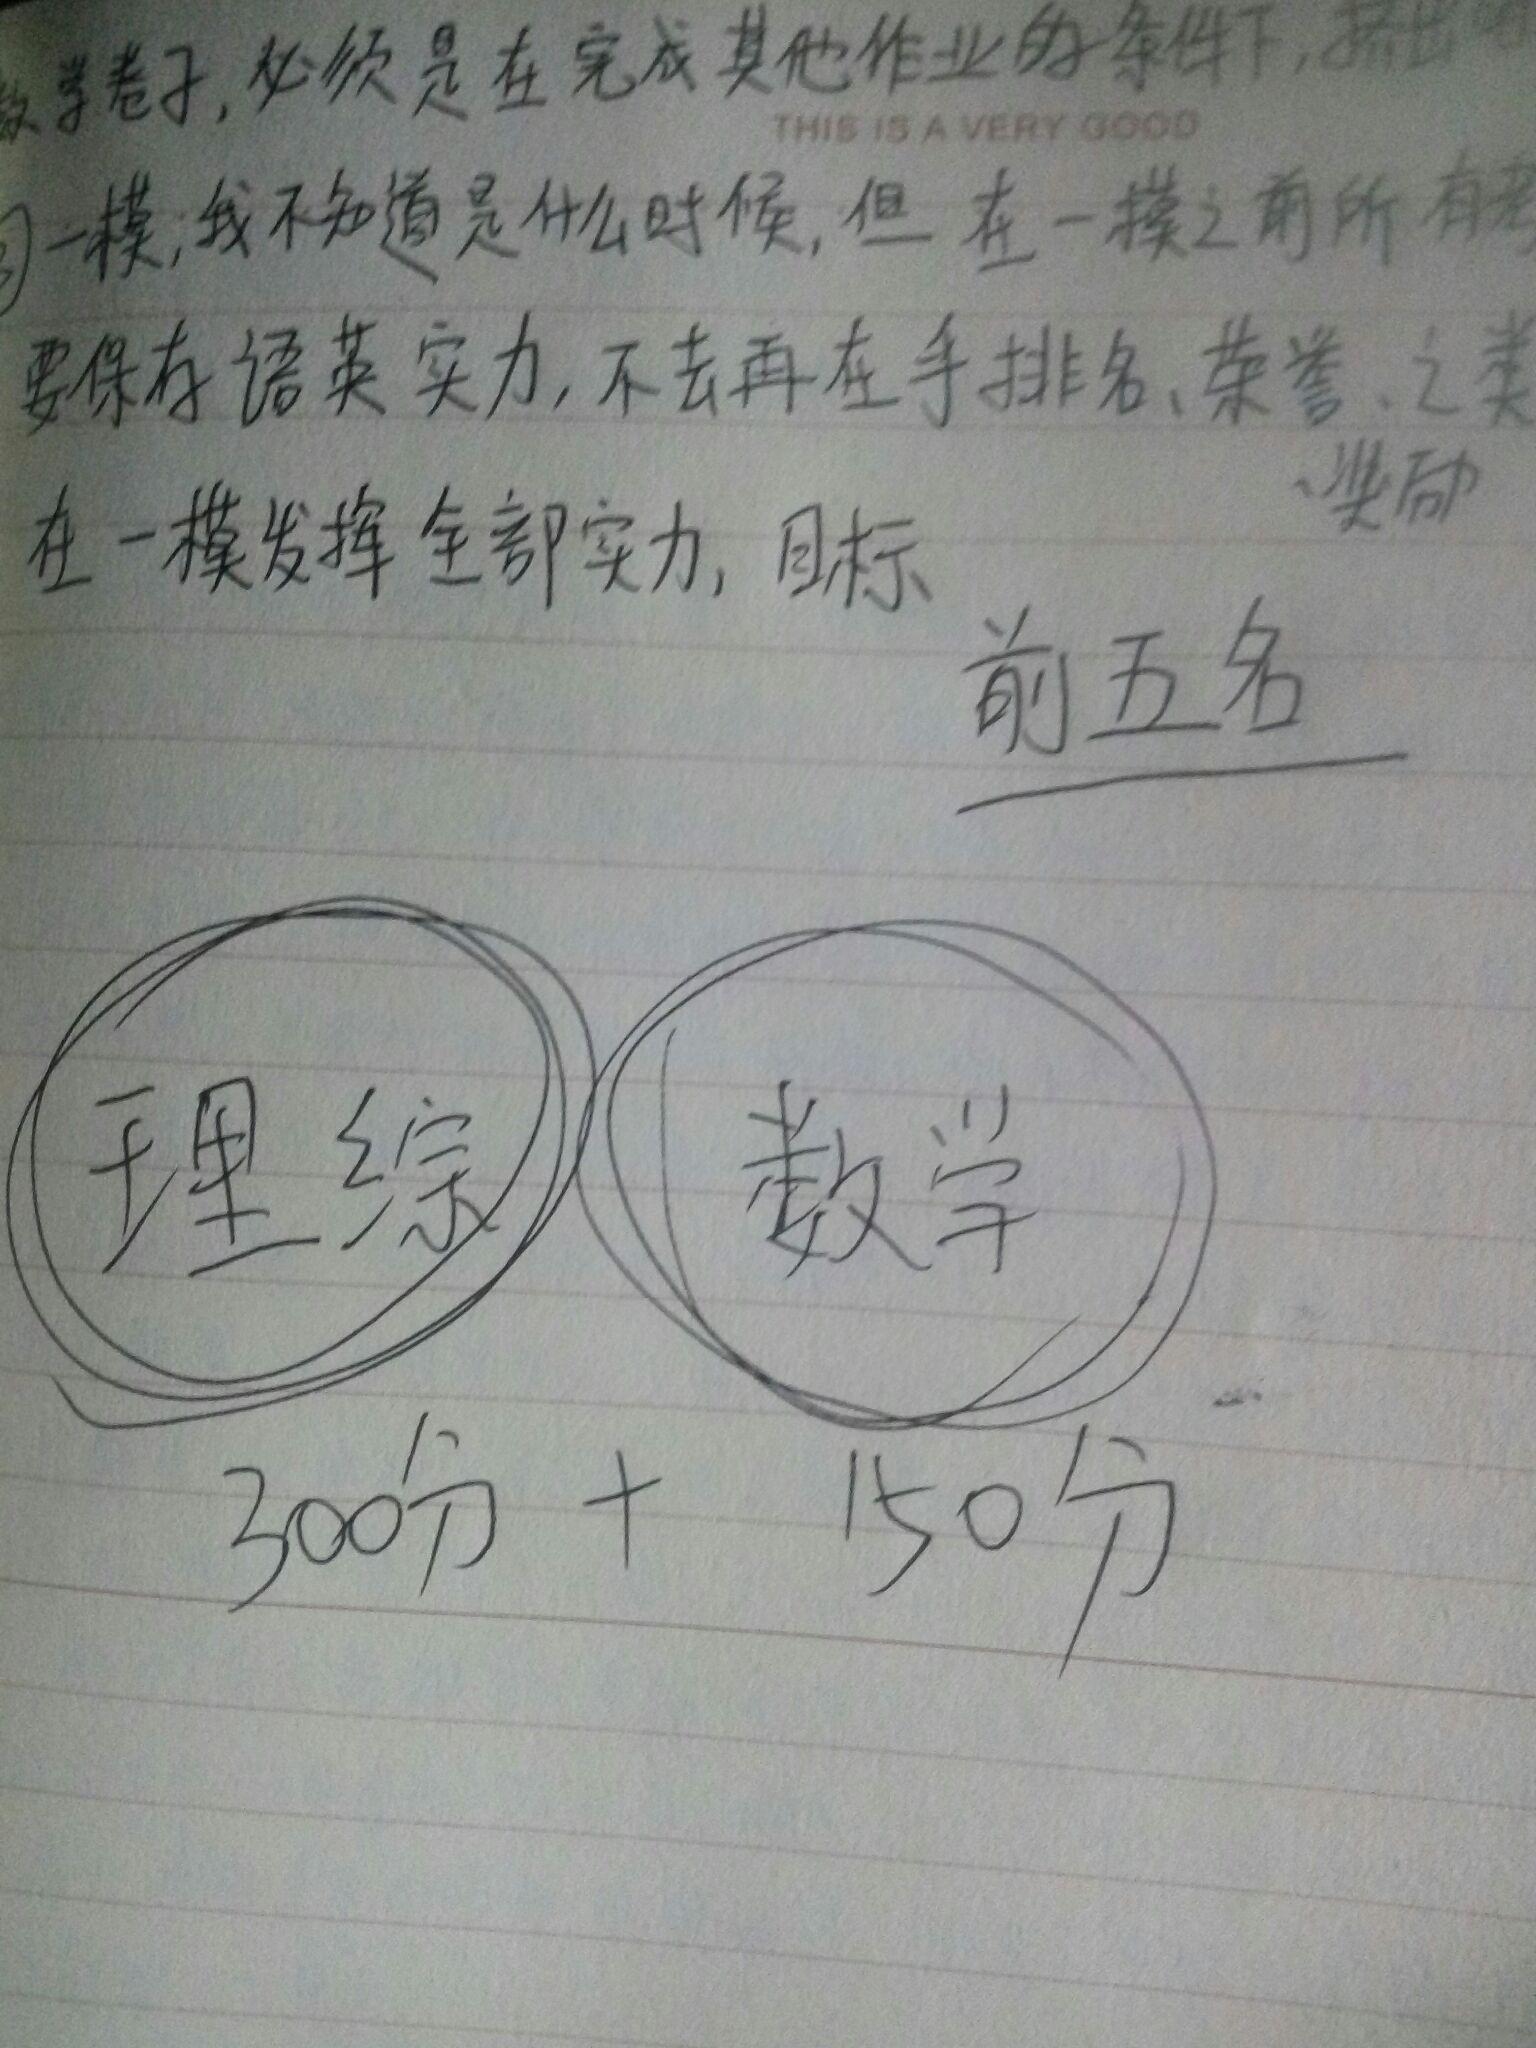 数学卷子,必须是在完成其他作业的条件下,挤出
THIS IS A VERY GOOD
③一模,我不知道是什么时候,但在一摸之前所有考
要保存语英实力,不去再在乎排名、荣誉、之类
、奖励
在一模发挥全部实力,目标
前五名
理综 数学
300分 + 150分